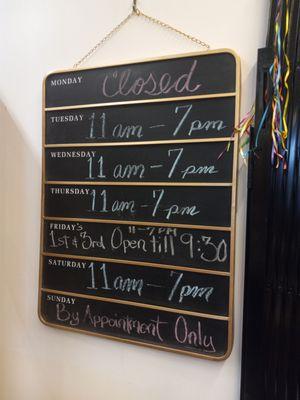 MONDAY Closed
TUESDAY 11am - 7pm
WEDNESDAY 11am - 7pm
THURSDAY 11am - 7pm
FRIDAY's 11-7PM
1st & 3rd Open till 9:30
SATURDAY 11am - 7pm
SUNDAY
By Appointment Only